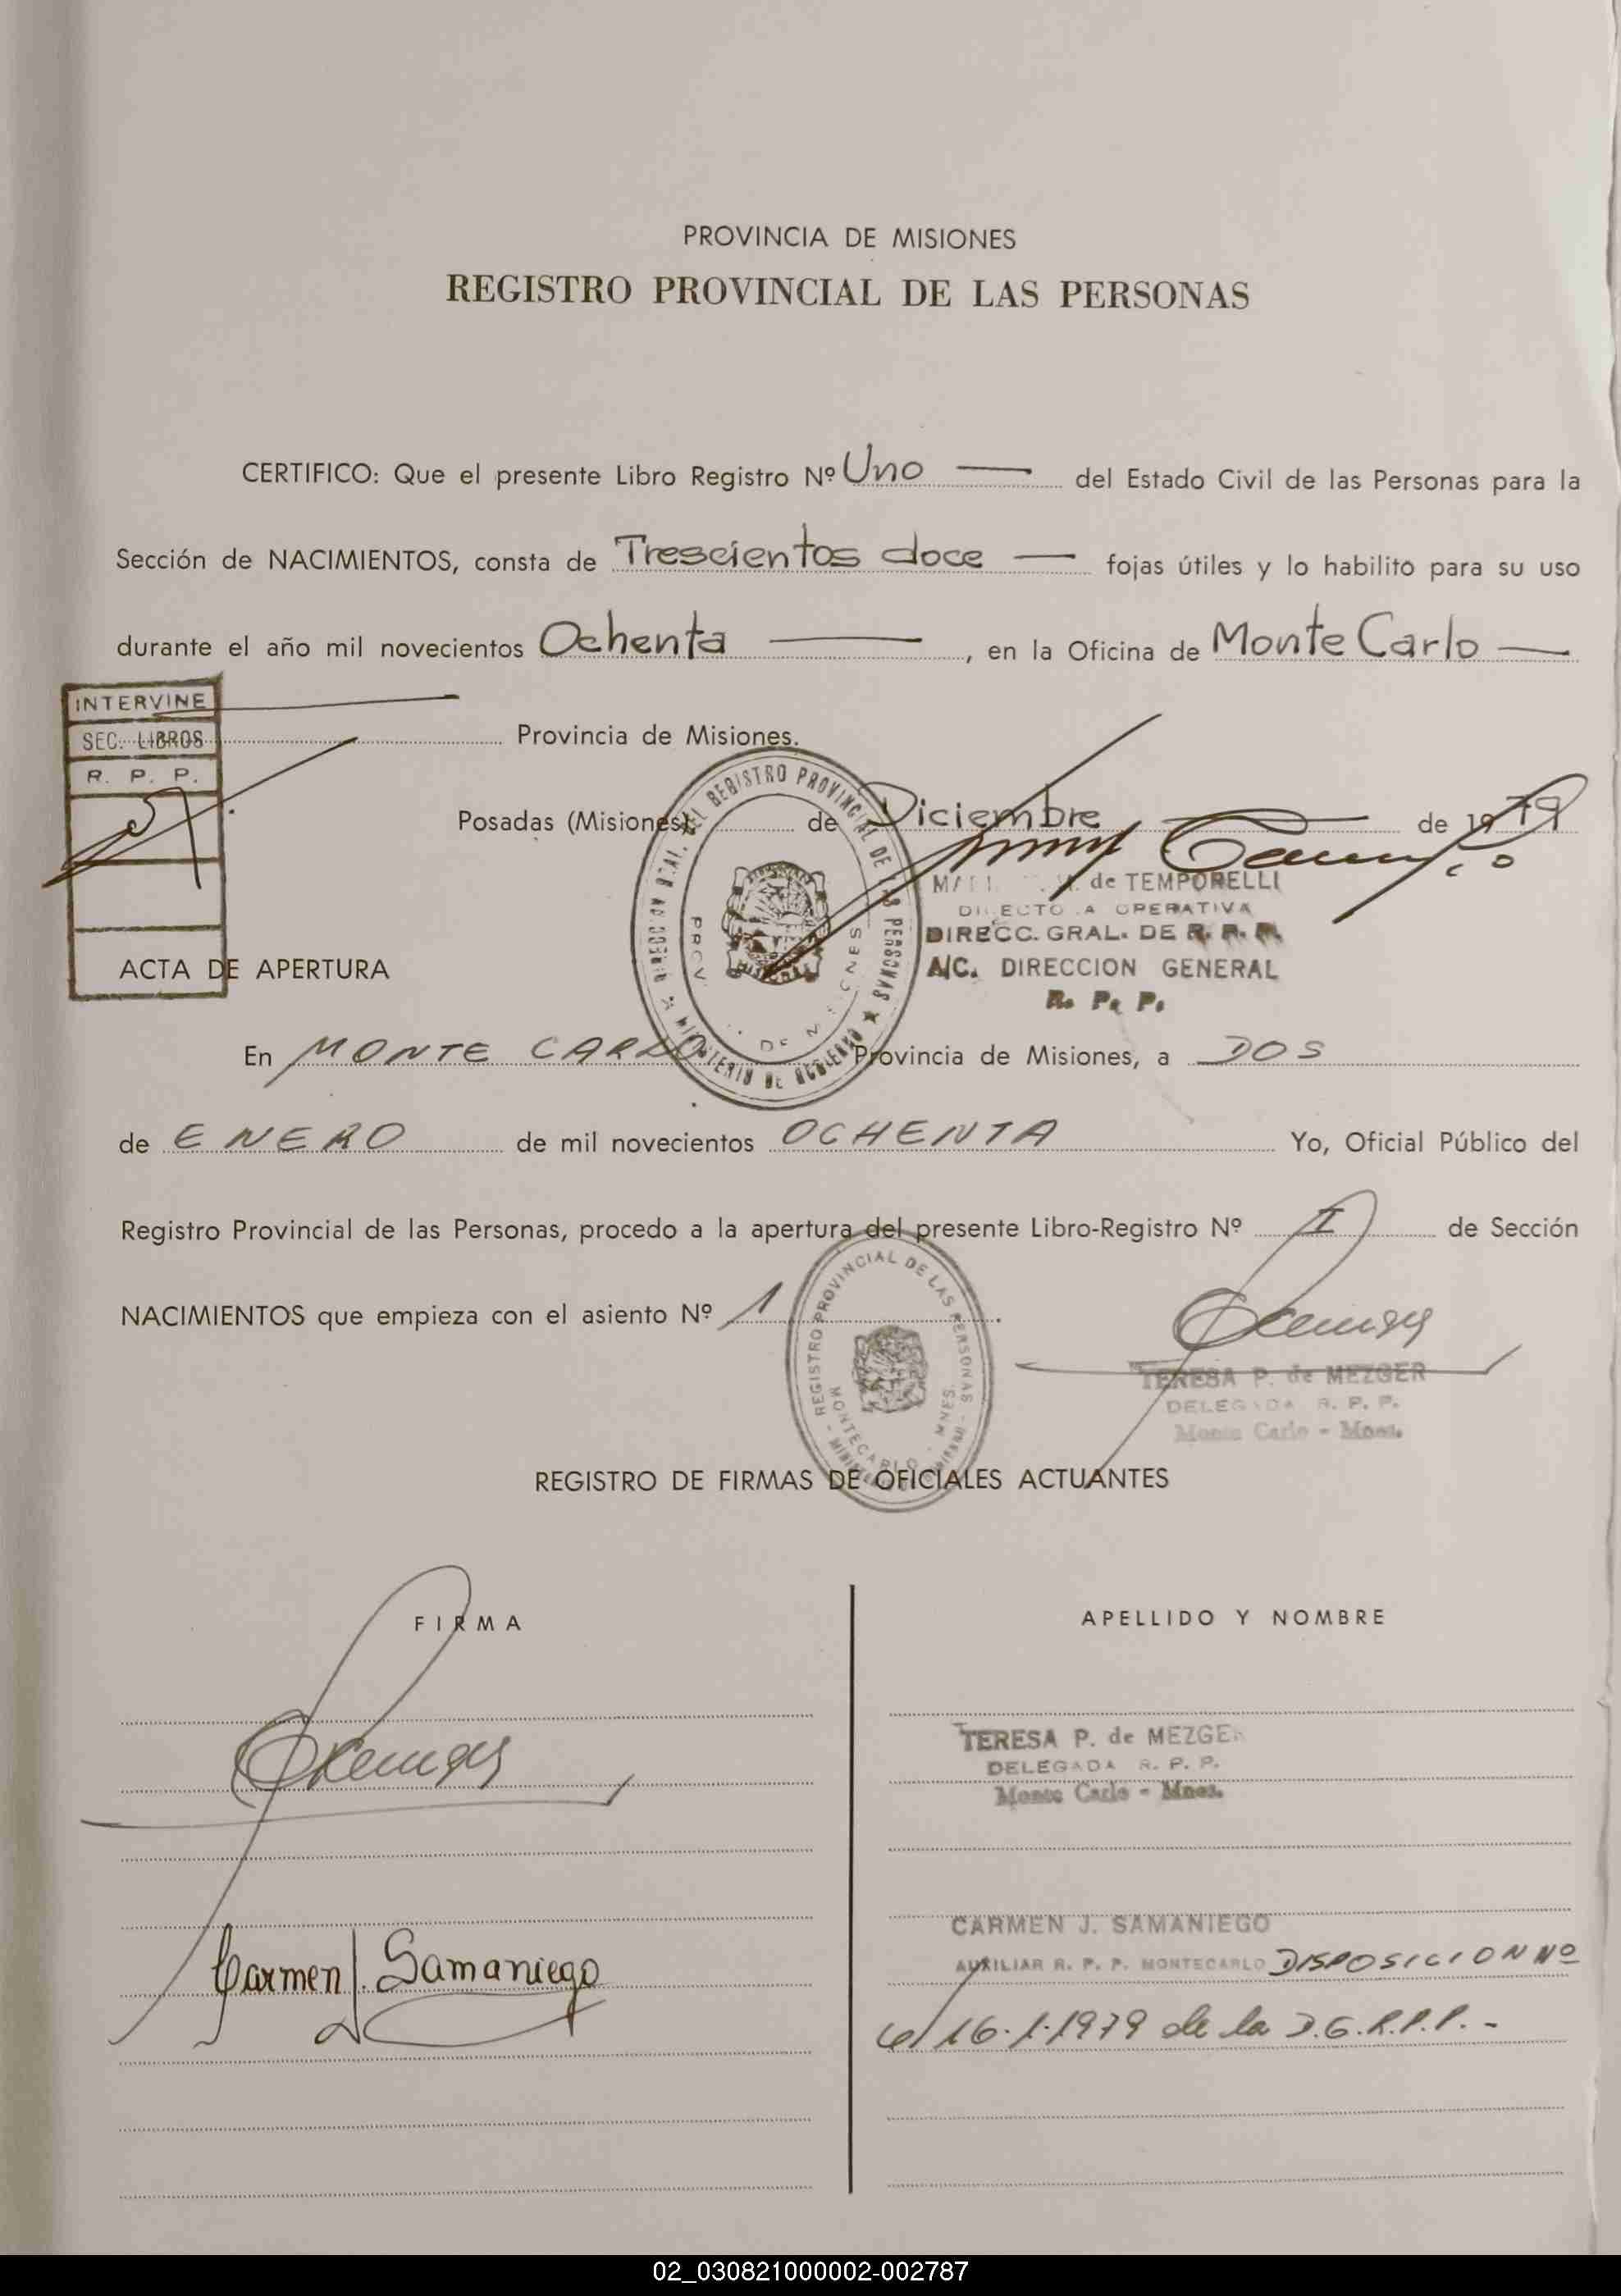 PROVINCIA DE MISIONES
REGISTRO PROVINCIAL DE LAS PERSONAS
CERTIFICO: Que el presente Libro Registro Nº Uno — del Estado Civil de las Personas para la
Sección de NACIMIENTOS, consta de Trescientos doce — fojas útiles y lo habilito para su uso
durante el año mil novecientos Ochenta — , en la Oficina de Monte Carlo —
INTERVINE
SEC. LIBROS
R. P. P.
Provincia de Misiones.
Posadas (Misiones), de Diciembre de 1979
REGISTRO PROVINCIAL DE LAS PERSONAS
de TEMPORELLI
DIRECTORA OPERATIVA
DIRECC. GRAL. DE R. P. P.
A/C. DIRECCION GENERAL
R. P. P.
ACTA DE APERTURA
En MONTE CARLO Provincia de Misiones, a DOS
de ENERO de mil novecientos OCHENTA Yo, Oficial Público del
Registro Provincial de las Personas, procedo a la apertura del presente Libro-Registro Nº I de Sección
NACIMIENTOS que empieza con el asiento Nº 1 .
REGISTRO PROVINCIAL DE LAS PERSONAS
MONTECARLO - MNES.
TERESA P. de MEZGER
DELEGADA R. P. P.
Monte Carlo - Mnes.
REGISTRO DE FIRMAS DE OFICIALES ACTUANTES
FIRMA
APELLIDO Y NOMBRE
TERESA P. de MEZGER
DELEGADA R. P. P.
Monte Carlo - Mnes.
Carmen J. Samaniego
CARMEN J. SAMANIEGO
AUXILIAR R. P. P. MONTECARLO DISPOSICION Nº
16.1.1979 de la D.G.R.P.P. -
02_030821000002-002787